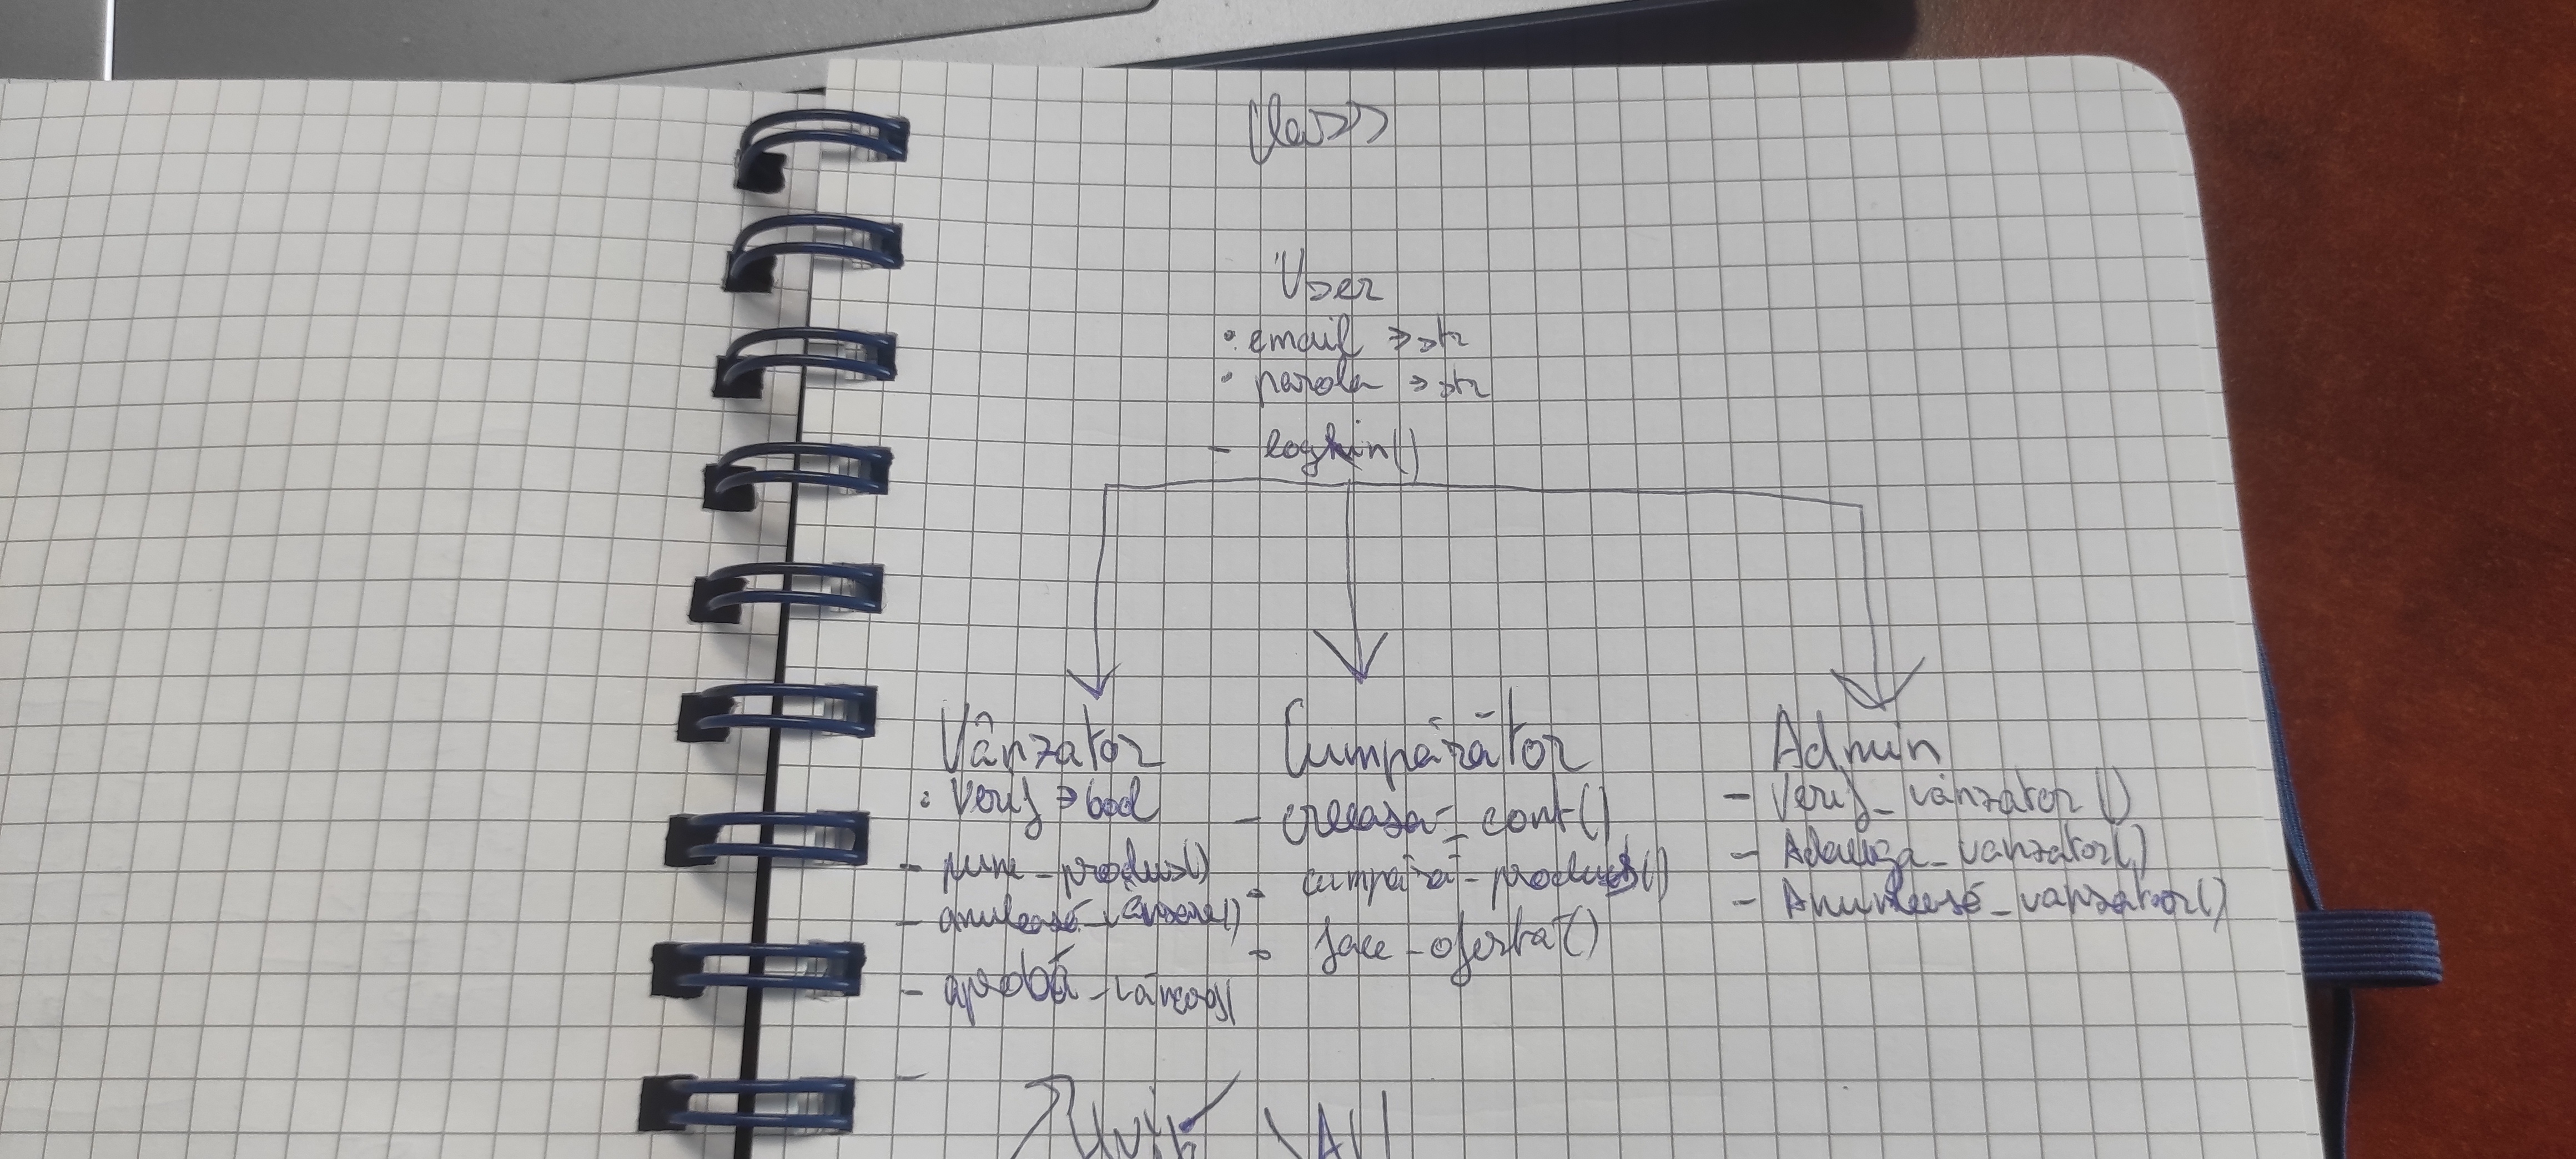 Class
User
• email => str
• parola => str
- login()
Vânzator
• Verif => bool
- pune_produs()
- anulează_vânzare()
- aprobă_
Cumpărător
- creeaza_cont()
- cumpără_produs()
- face_ofertă()
Admin
- Verif_vânzator()
- Adauga_vanzator()
- _vanzator()